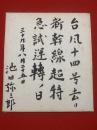 台風十四号去り
新幹線超特
急試運転ノ日
三十九年八月二十五日
池田弥三郎